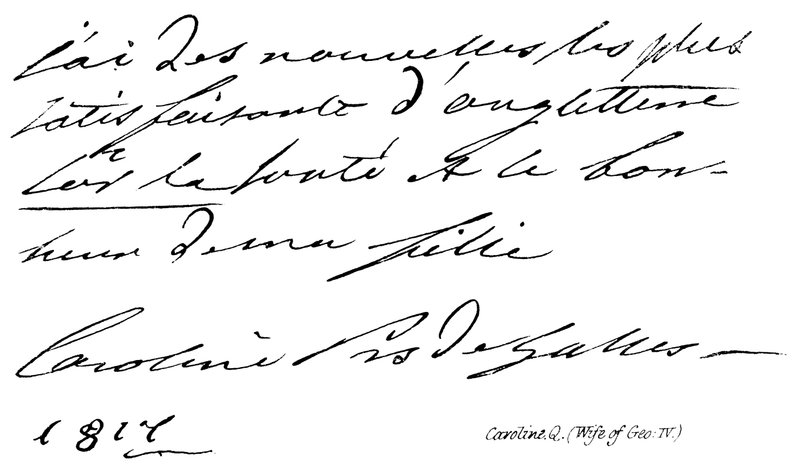 j'ai des nouvelles les plus
satisfaisante d'angletterre
sur la santé et le bon-
heur de ma fillie
Caroline Prs de Galles —
1817
Caroline. Q. (Wife of Geo: IV.)